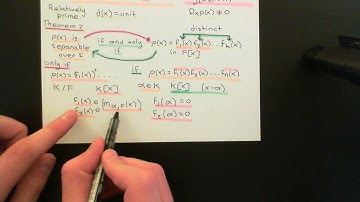 Relatively prime d(x)=unit Dxp(x)≠0
Theorem?
p(x) is separable over F if and only if p(x)=f₁(x)f₂(x)...fₙ(x) in F[x] distinct
only if if
p(x)=(f₁(x))²...... p(x)=f₁(x)f₂(x)...fₙ(x)
K/F K[x] α∈K K[x] (x-α)
f₁(x)∈(mα,F(x)) f₁(α)=0
f₂(x)∈ f₂(α)=0